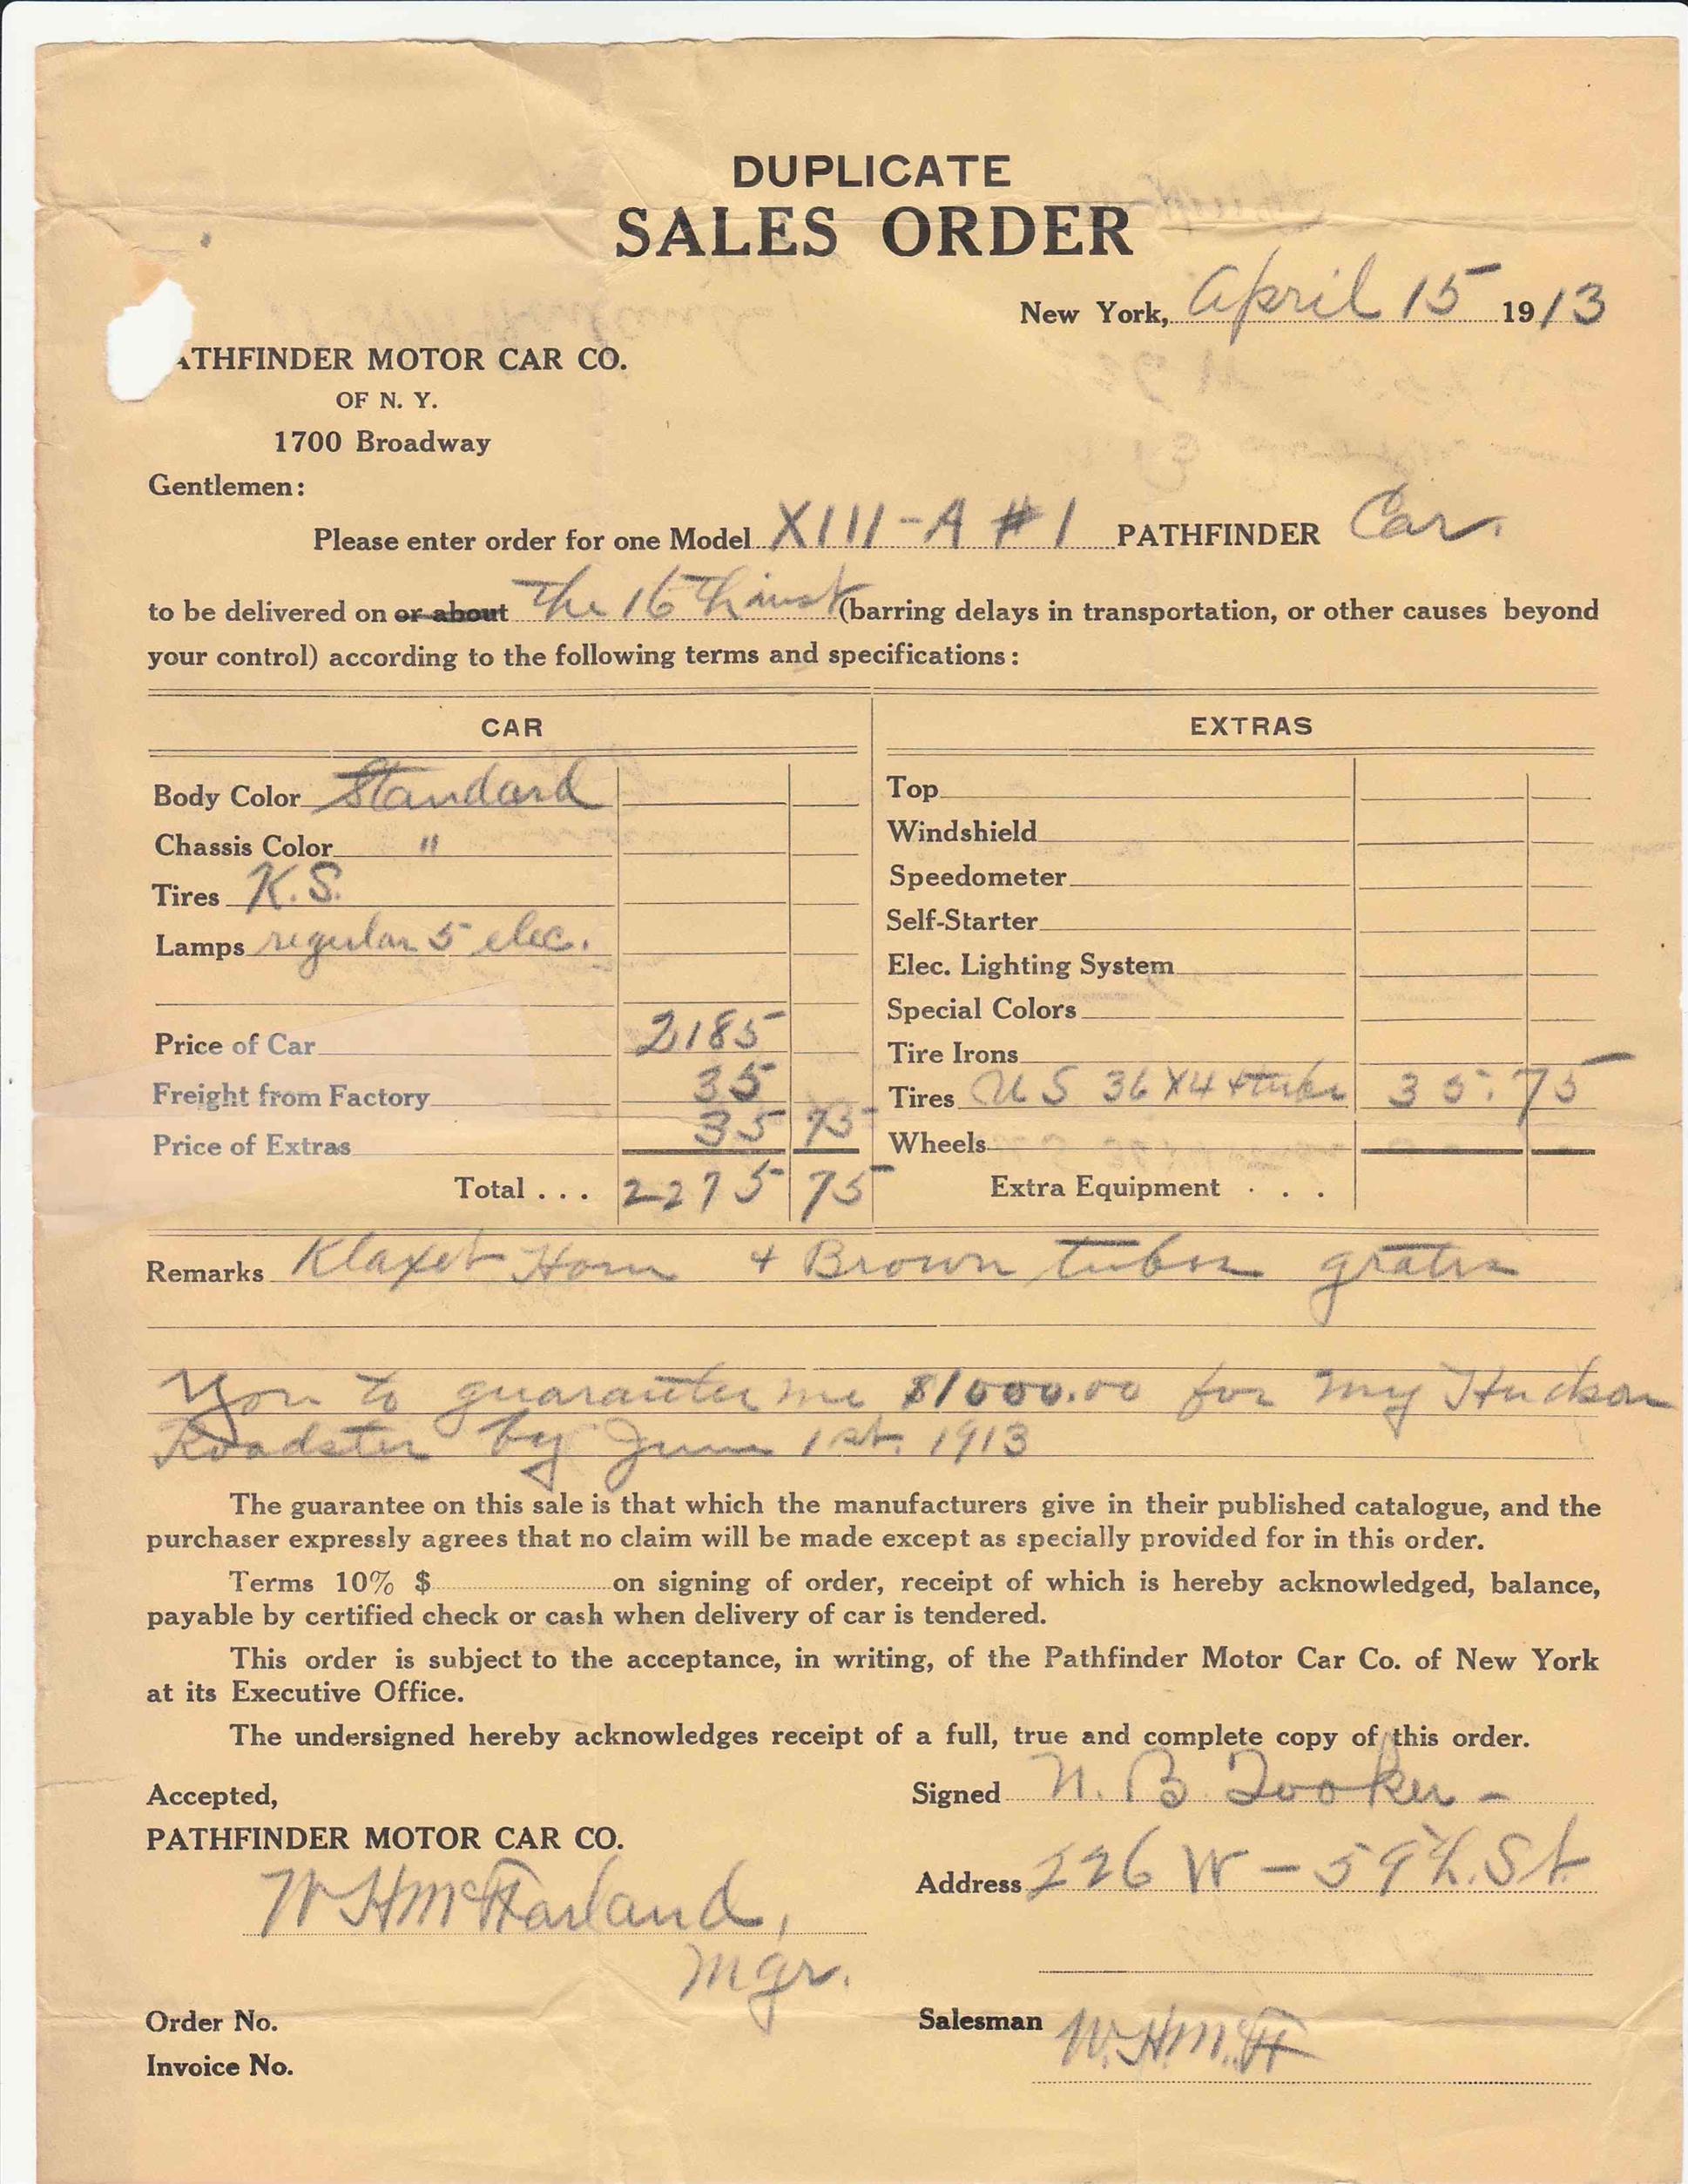 DUPLICATE
SALES ORDER
New York, April 15 1913
ATHFINDER MOTOR CAR CO.
OF N. Y.
1700 Broadway
Gentlemen:
Please enter order for one Model XIII-A #1 PATHFINDER Car.
to be delivered on or about the 16th inst (barring delays in transportation, or other causes beyond
your control) according to the following terms and specifications:
CAR EXTRAS
Body Color Standard Top
Chassis Color " Windshield
Tires K.S. Speedometer
Lamps regular 5 elec. Self-Starter
Elec. Lighting System
Special Colors
Price of Car 2185 Tire Irons
Freight from Factory 35 Tires U S 36 X 4 + tubes 35.75
Price of Extras 35 75 Wheels
Total . . . 2275 75 Extra Equipment . . .
Remarks Klaxet Horn + Brown tubes gratis
You to guarantee me $1000.00 for my Hudson
Roadster by June 1st. 1913
The guarantee on this sale is that which the manufacturers give in their published catalogue, and the
purchaser expressly agrees that no claim will be made except as specially provided for in this order.
Terms 10% $ on signing of order, receipt of which is hereby acknowledged, balance,
payable by certified check or cash when delivery of car is tendered.
This order is subject to the acceptance, in writing, of the Pathfinder Motor Car Co. of New York
at its Executive Office.
The undersigned hereby acknowledges receipt of a full, true and complete copy of this order.
Accepted, Signed N. B. Tooker -
PATHFINDER MOTOR CAR CO.
W H McFarland, Address 226 W - 59th. St.
Mgr.
Order No. Salesman W.H.McF
Invoice No.